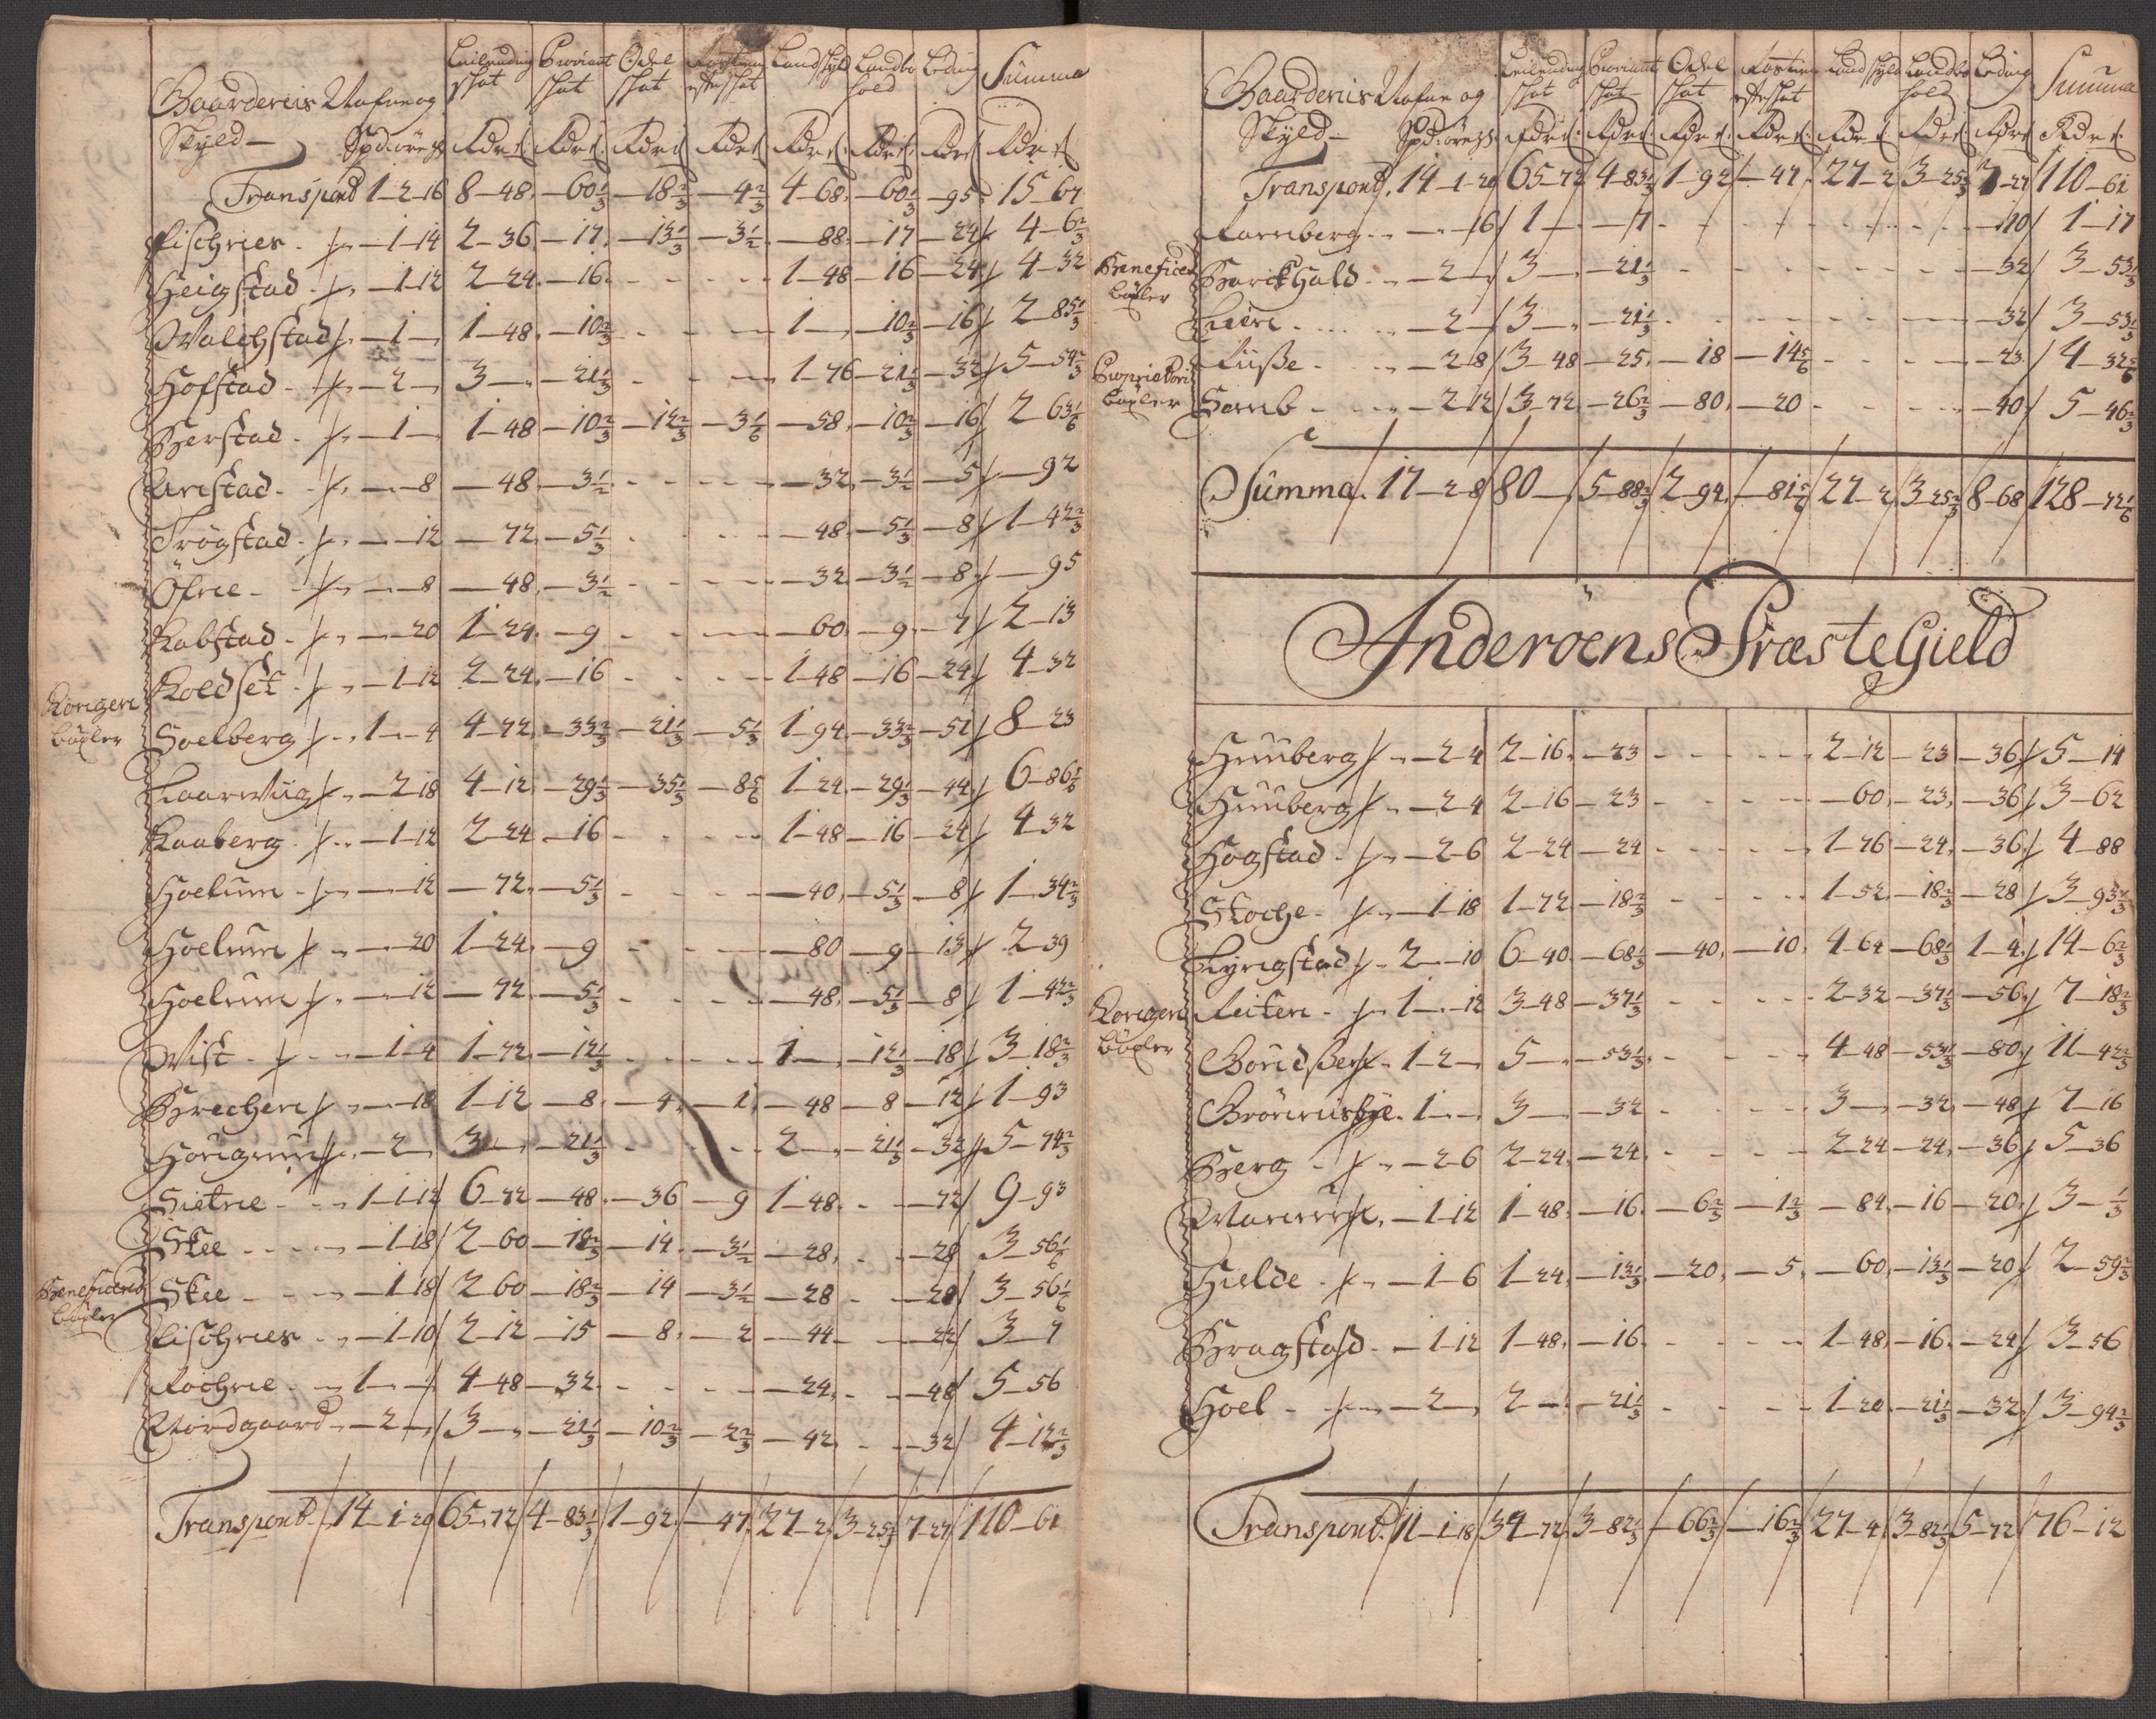 Gaardenis Nafne og Skyld — Spd: öre | Leilending skat | Proviant skat | Odel skat | skat | Landskyld | Landbo hold | Leding | Summa
Transport 1-2-16 8-48 -60 1/3 -18 2/3 -4 2/3 4-68 -60 1/3 -95 15-67
Fischnes -1-14 2-36 -17 -13 1/3 -3 1/2 -88 -17 -24 4-6 2/3
Heigstad -1-12 2-24 -16 1-48 -16 -24 4-32
Walchstad -1- 1-48 -10 2/3 1- -10 2/3 -16 2-85 1/3
Hofstad -2- 3- -21 1/3 1-76 -21 1/3 -32 5-54 2/3
Berstad -1- 1-48 -10 2/3 -12 2/3 -3 1/6 -58 -10 2/3 -16 2-63 1/6
Arstad -8 -48 -3 1/2 -32 -3 1/2 -5 -92
Trögstad -12 -72 -5 1/3 -48 -5 1/3 -8 1-42 2/3
Öfrie -8 -48 -3 1/2 -32 -3 1/2 -8 -95
Kabstad -20 1-24 -9 -60 -9 -7 2-13
Koldset -1-12 2-24 -16 1-48 -16 -24 4-32
Kongens böxler
Soelberg 1-4 4-72 -33 2/3 -21 1/3 -5 1/3 1-94 -33 2/3 -51 8-23
Kaarwiig -2-18 4-12 -29 1/3 -35 1/3 -8 5/6 1-24 -29 1/3 -44 6-86 5/6
Kaaberg -1-12 2-24 -16 1-48 -16 -24 4-32
Hoelum -12 -72 -5 1/3 -40 -5 1/3 -8 1-34 2/3
Hoelum -20 1-24 -9 -80 -9 -13 2-39
Hoelum -12 -72 -5 1/3 -48 -5 1/3 -8 1-42 2/3
Wist -1-4 1-72 -12 1/3 1- -12 1/3 -18 3-18 2/3
Brechen -18 1-12 -8 -4 -1 -48 -8 -12 1-93
-2- 3- -21 1/3 2- -21 1/3 -32 5-74 2/3
Sietrie 1-1-12 6-72 -48 -36 -9 1-48 -72 9-93
Skee -1-18 2-60 -18 2/3 -14 -3 1/2 -28 -28 3-56 1/6
Beneficered böxler
Skee -1-18 2-60 -18 2/3 -14 -3 1/2 -28 -28 3-56 1/6
Fischnes -1-10 2-12 -15 -8 -2 -44 -22 3-7
Fochrie 1- 4-48 -32 -24 -48 5-56
Nordgaard -2- 3- -21 1/3 -10 2/3 -2 2/3 -42 -32 4-12 2/3
Transport 14-1-20 65-72 4-83 1/3 1-92 -47 27-2 3-25 2/3 7-27 110-61
Gaardenis Nafne og Skyld — Spd: öre | Leilending skat | Proviant skat | Odel skat | skat | Landskyld | Landbo hold | Leding | Summa
Transport 14-1-20 65-72 4-83 1/3 1-92 -47 27-2 3-25 2/3 7-27 110-61
Ramberg -16 1- -7 -10 1-17
Beneficer böxler
Barkhald -2- 3- -21 1/3 -32 3-53 1/3
Lieen -2- 3- -21 1/3 -32 3-53 1/3
Proprietari böxler
Tüsse -2-8 3-48 -25 -18 -14 5/6 -23 4-32 5/6
Somb -2-12 3-72 -26 2/3 -80 -20 -40 5-46 2/3
Summa 17-2-8 80- 5-88 2/3 2-94 -81 5/6 27-2 3-25 2/3 8-68 128-72 1/6
Inderöens PræsteGield
Huuberg -2-4 2-16 -23 2-12 -23 -36 5-14
Huuberg -2-4 2-16 -23 -60 -23 -36 3-62
Hogstad -2-6 2-24 -24 1-76 -24 -36 4-88
Stoche -1-18 1-72 -18 2/3 1-52 -18 2/3 -28 3-93 1/3
Kyngstad 2-10 6-40 -68 1/3 -40 -10 4-64 -68 1/3 1-4 14-6 2/3
Kongens böxler
Leiten 1-12 3-48 -37 1/3 2-32 -37 1/3 -56 7-18 2/3
1-2- 5- -53 1/3 4-48 -53 1/3 -80 11-42 2/3
1- 3- -32 3- -32 -48 7-16
Berg -2-6 2-24 -24 2-24 -24 -36 5-36
-1-12 1-48 -16 -6 2/3 -1 2/3 -84 -16 -20 3- 1/3
Hielde -1-6 1-24 -13 1/3 -20 -5 -60 -13 1/3 -20 2-59 2/3
Bragstad -1-12 1-48 -16 1-48 -16 -24 3-56
Hoel -2- 2- -21 1/3 1-20 -21 1/3 -32 3-94 2/3
Transport 11-1-18 34-72 3-82 1/3 -66 2/3 -16 2/3 27-4 3-82 1/3 5-72 76-12